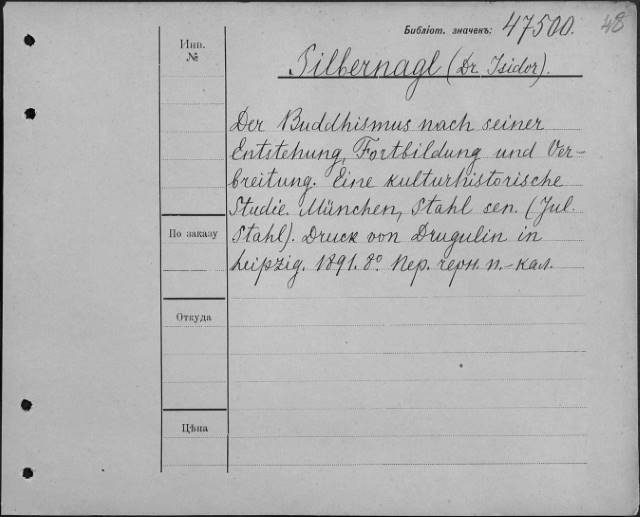 Библіот. значекъ: 47500. 48
Инв.
№
Silbernagl (Dr. Isidor).
Der Buddhismus nach seiner
Entstehung, Fortbildung und Ver-
breitung. Eine kulturhistorische
Studie. München, Stahl sen. (Jul.
Stahl). Druck von Drugulin in
Leipzig. 1891. 8º. Пер. черн. п.-кал.
По заказу
Откуда
Цѣна